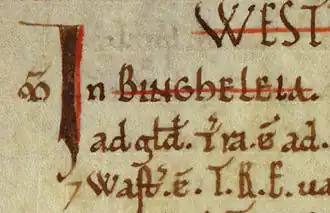 WEST
In BINGHELEIA.
ad gld. T'ra. ē ad.
⁊ Wast'. ē. T. R. E. ua